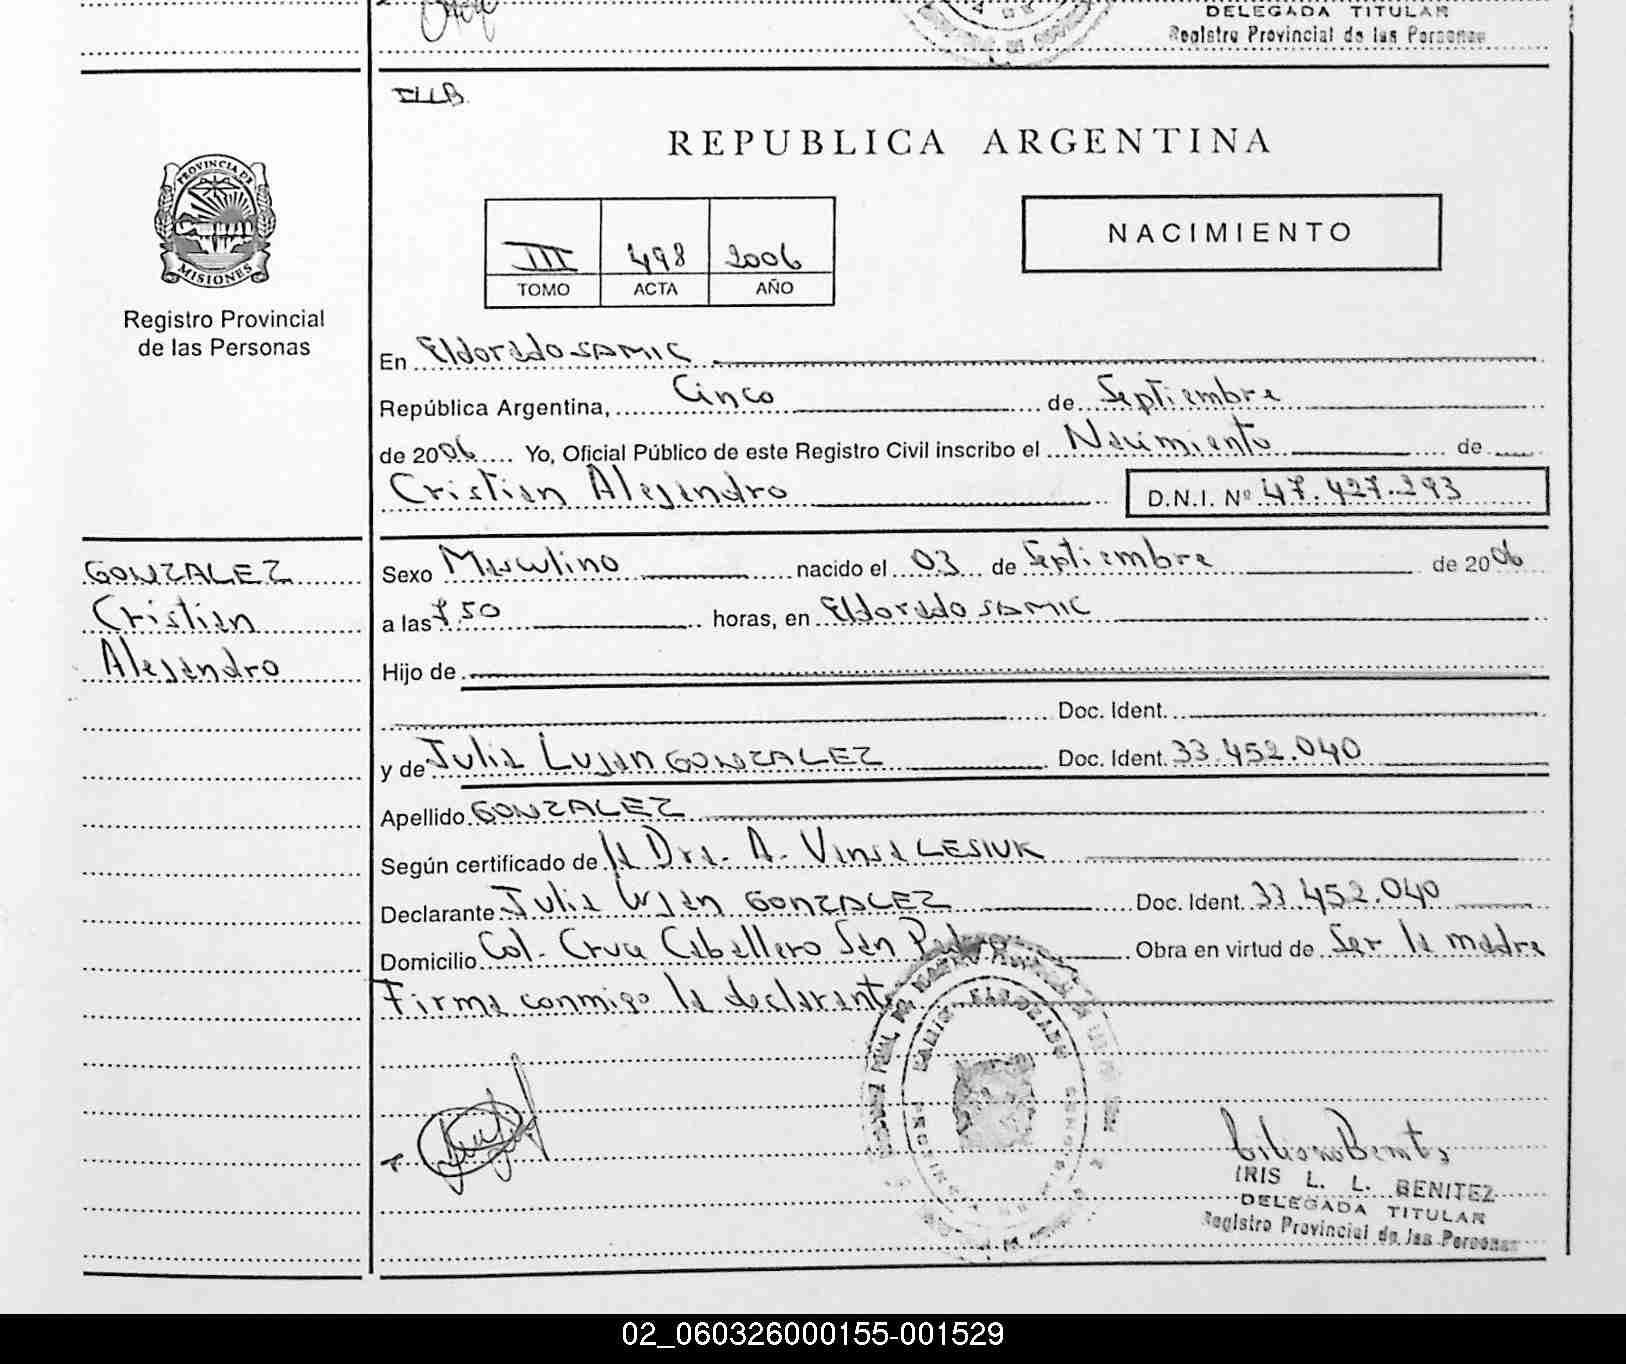 DELEGADA TITULAR
Registro Provincial de las Personas
ILLB.
REPUBLICA ARGENTINA
PROVINCIA DE
MISIONES
Registro Provincial
de las Personas
III 498 2006
TOMO ACTA AÑO
NACIMIENTO
En Eldorado SAMIC
República Argentina, Cinco de Septiembre
de 2006 Yo, Oficial Público de este Registro Civil inscribo el Nacimiento de
Cristian Alejandro D.N.I. Nº 47.427.293
GONZALEZ
Cristian
Alejandro
Sexo Masculino nacido el 03 de Septiembre de 2006
a las 7.50 horas, en Eldorado SAMIC
Hijo de
Doc. Ident.
y de Julia Lujan GONZALEZ Doc. Ident. 33.452.040
Apellido GONZALEZ
Según certificado de la Dra. A. Vansa LESIUK
Declarante Julia Lujan GONZALEZ Doc. Ident. 33.452.040
Domicilio Col. Cruce Caballero San Pedro Obra en virtud de Ser la madre
Firma conmigo la declarante
IRIS L. L. BENITEZ
DELEGADA TITULAR
Registro Provincial de las Personas
02_060326000155-001529